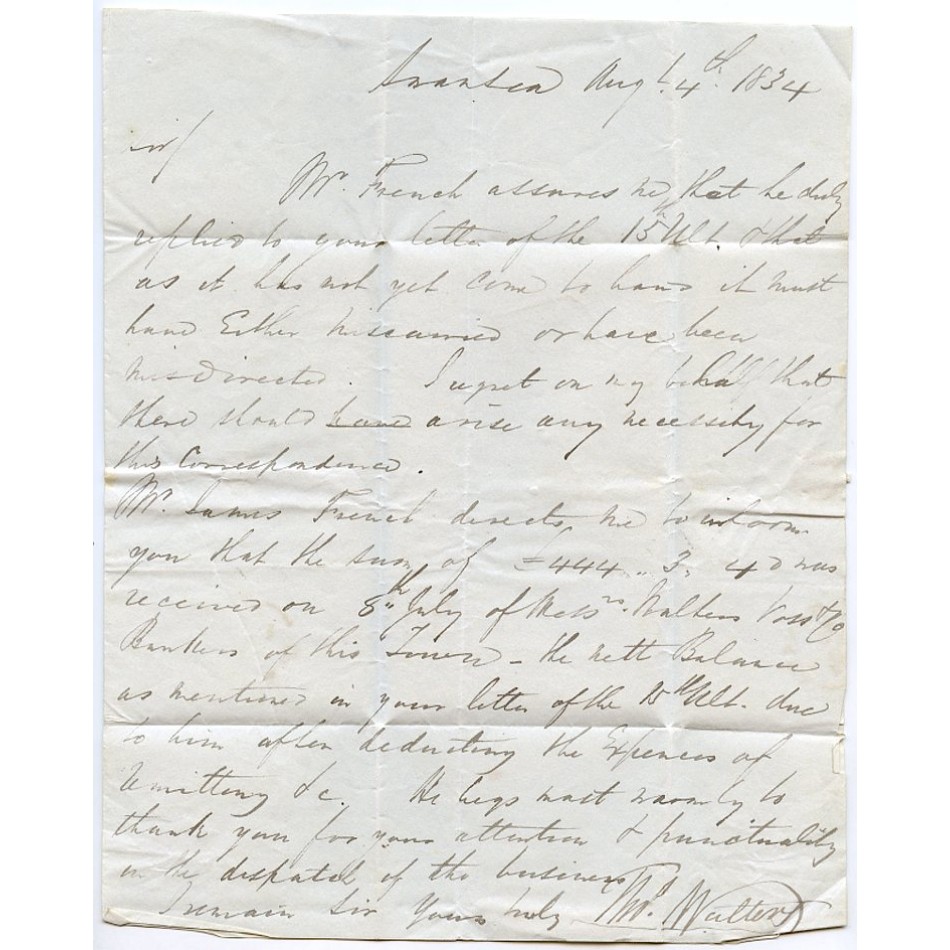 Swansea Augt. 4th. 1834
Sir/
Mr. French assures me that he duly
replied to your letter of the 15th Ult. & that
as it has not yet come to hand it must
have Either miscarried or have been
misdirected. I regret on my behalf that
there should have arise any necessity for
this Correspondence.
Mr. James French directs me to inform
you that the sum of £444 " 3 " 4 d was
received on 8th July of Messrs. Walters Voss & Co
Bankers of this Town – the nett Balance
as mentioned in your letter of the 15th Ult. due
to him after deducting the Expences of
remitting &c. He begs most warmly to
thank you for your attention & punctuality
in the dispatch of the business
I remain Sir Yours truly Thos. Walters